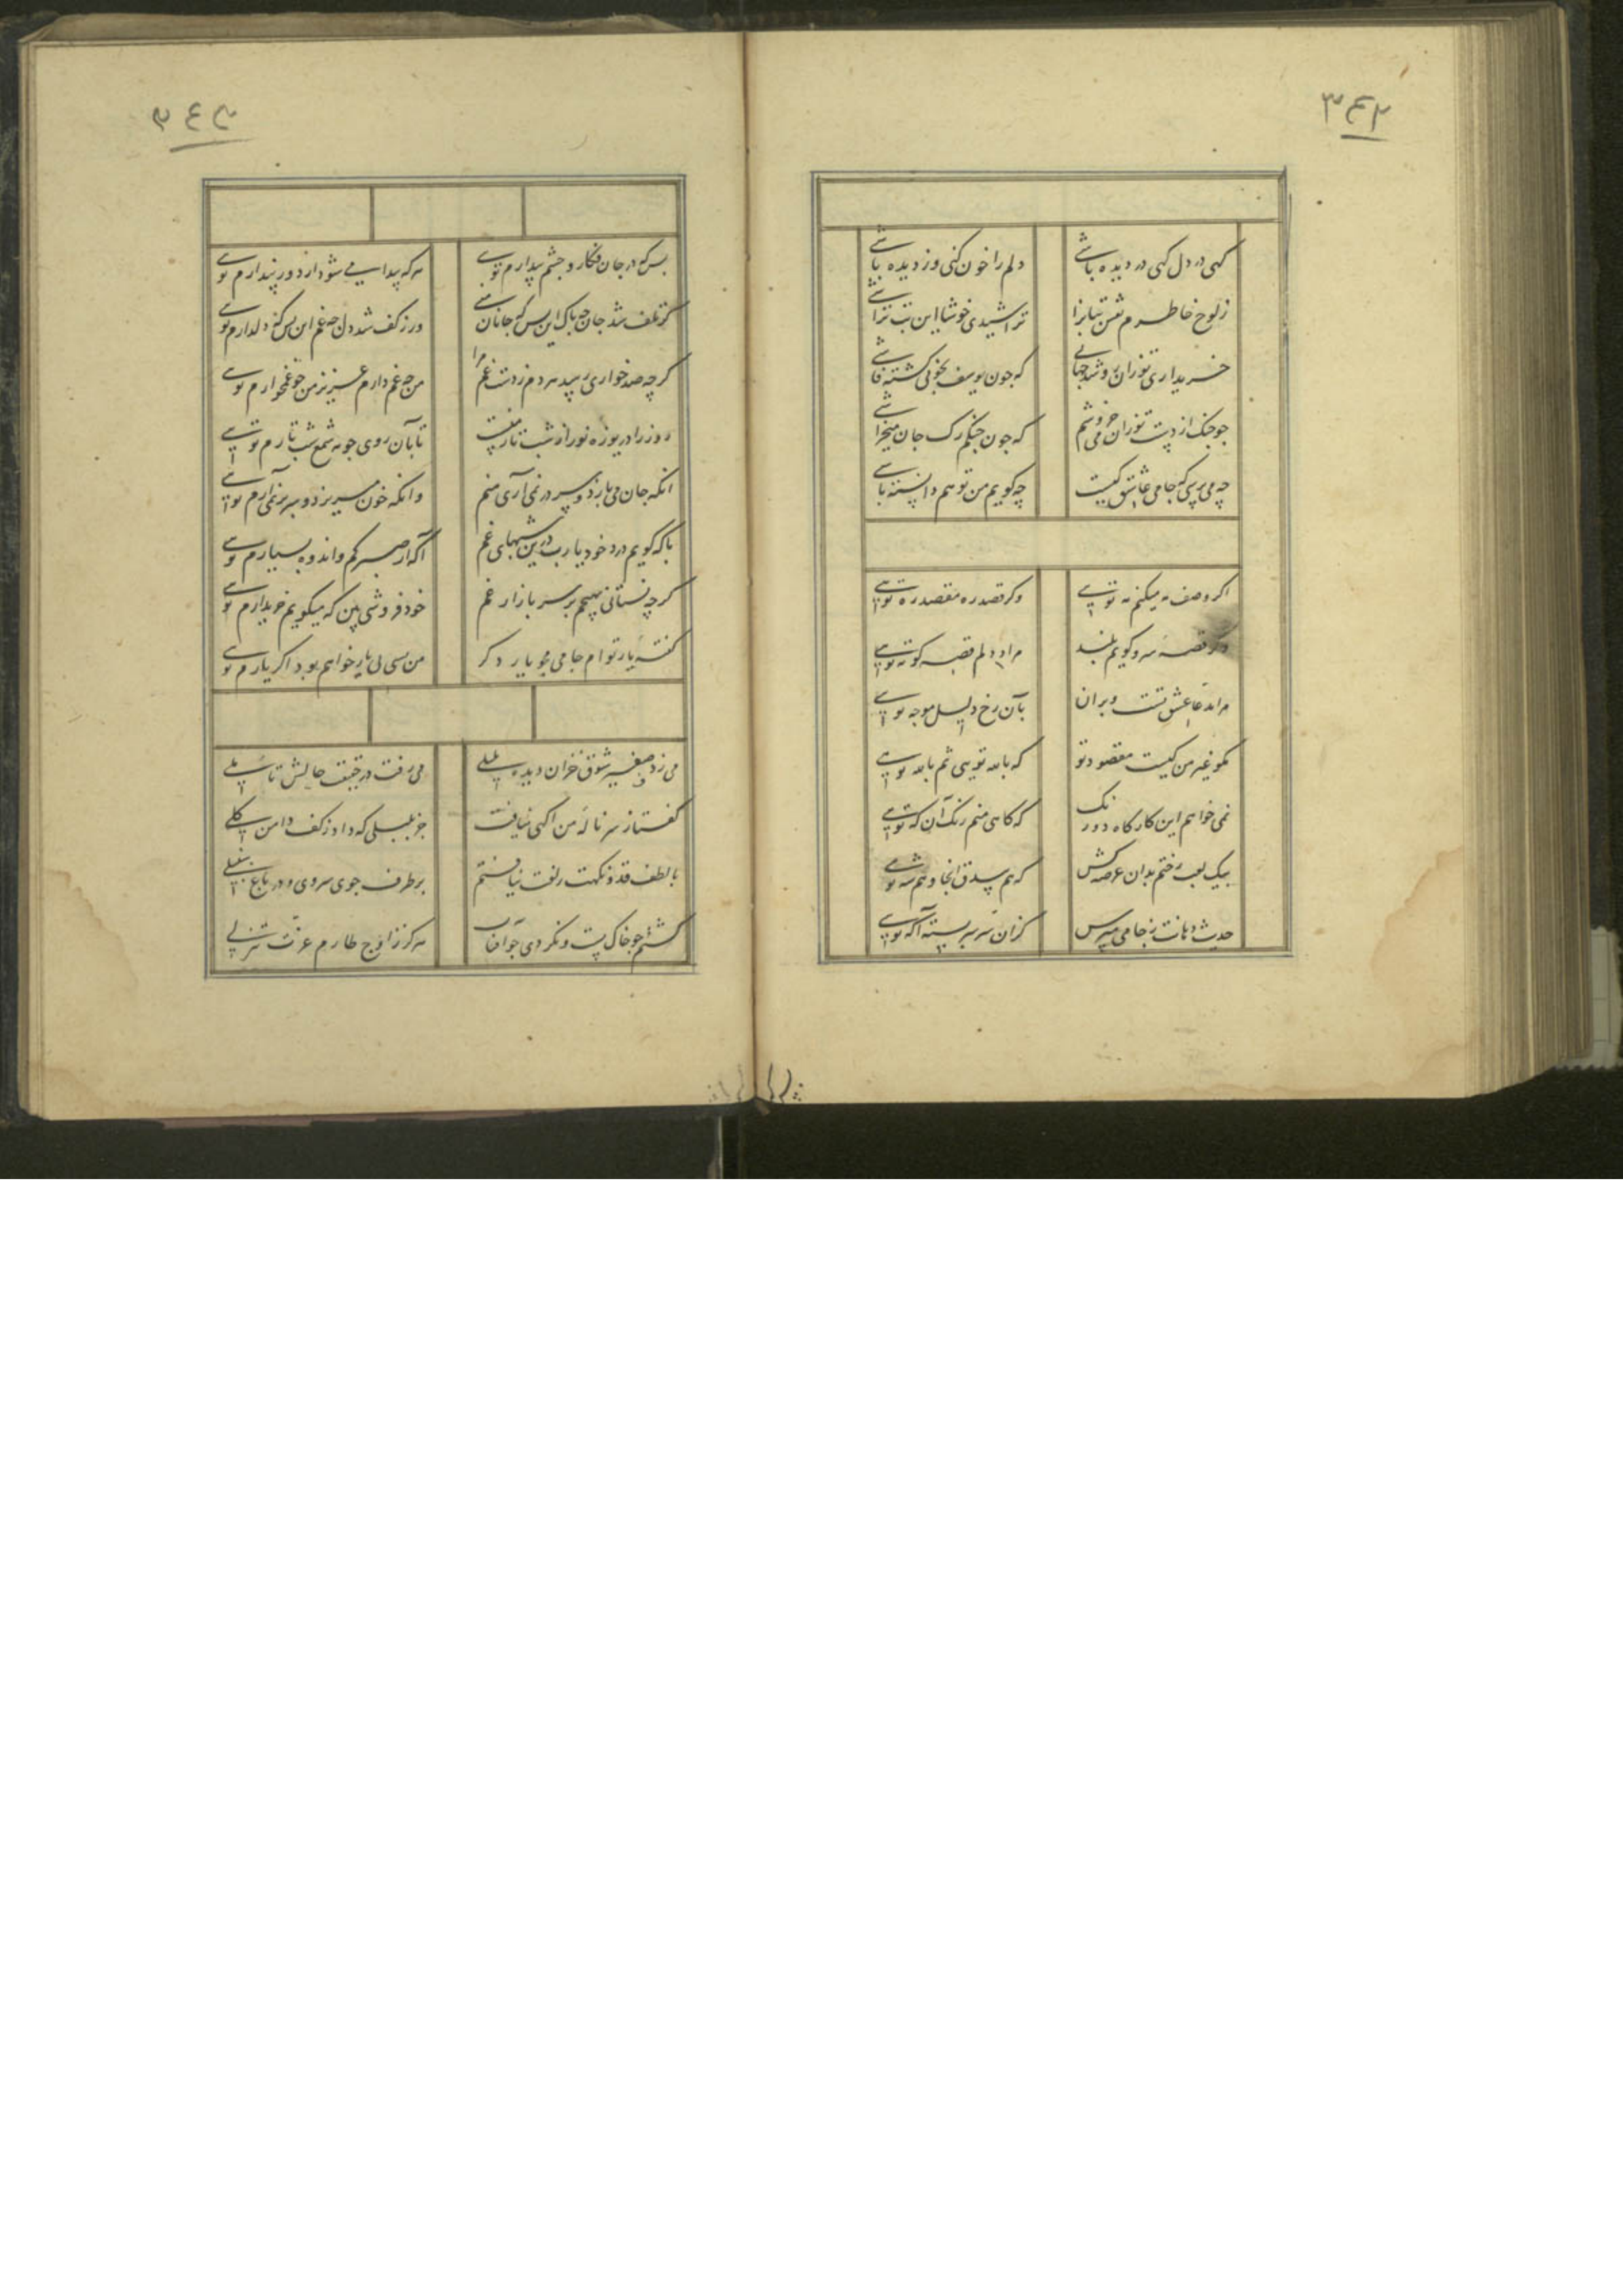 ٣٤٢
گهی در دل گهی در دیده باشی
دلم را خون کنی وز دیده باشی
ز لوح خاطرم نقش بتانرا
تراشیدی خوشا این بت تراشی
خریداری تو زان رو شد جهانی
که چون یوسف بخوبی گشته فاشی
چو چنک از دست تو زان می خروشم
که چون چنگم رک جان میخراشی
چه می پرسی که جامی عاشق کیست
چه گویم من تو هم دانسته باشی
اگر وصف مه میکنم مه تویی
وگر قصد ره مقصد ره تویی
وگر قصه سرو گویم بلند
مراد دلم قصه کوته تویی
که بالله تویی ثم بالله تویی
نمی خواهم این کارگاه دو رنک
که گاهی منم رنک آن که تویی
که هم بیدق آنجا و هم شه تویی
حدیث دهانت ز جامی مپرس
کزان سر سربسته آگه تویی
٣٤٣
بس که در جان فکار و چشم بیدارم تویی
هر که پیدا می شود از دور پندارم تویی
گر تلف شد جان چه باک این بس که جانان
ور ز کف شد دل چه غم این بس که دلدارم تویی
گر چه صد خواری رسید هر دم ز دست غم مرا
من چه غم دارم عزیز من چو غمخوارم تویی
تا بآن روی چو مه شمع شب تارم تویی
آنکه جان می بازد و سر در نمی آری منم
وانکه خون میریزد و سر بر نمی آرم تویی
با که گویم درد خود یا رب درین شبهای غم
آگه از صبر کم و اندوه بسیارم تویی
گر چه نستانی بهیچم بر سر بازار غم
خودفروشی بین که میگویم خریدارم تویی
گفته یار توام جامی مجو یار دگر
من بسی بی یار خواهم بود اگر یارم تویی
می زد صفیر شوق خزان دیده بلبلی
می رفت در حقیقت حالش تأملی
گفتا ز سر ناله من آگهی نیافت
جز بلبلی که داد ز کف دامن گلی
با لطف قد و نکهت زلفت نیافتم
بر طرف جوی سروی و در باغ سنبلی
گشتم چو خاک پست و نکردی چو آفتاب
هرگز ز اوج طارم عزت تنزلی